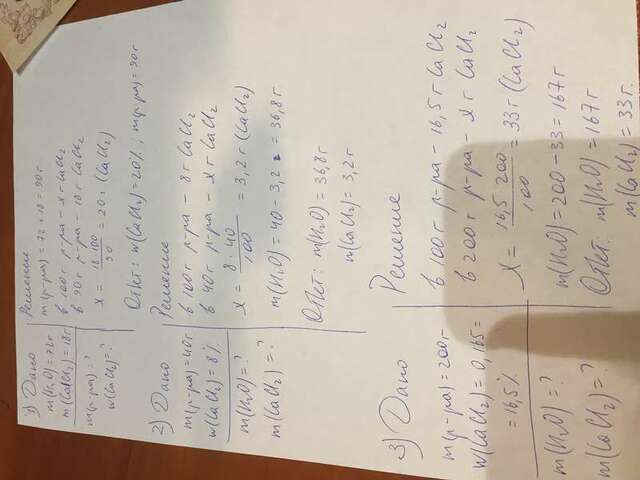 1) Дано
m(H₂O) = 72г
m(CaCl₂) = 18г
m(р-ра) = ?
w(CaCl₂) = ?
Решение
m(р-ра) = 72 + 18 = 90г
в 100г р-ра – xг CaCl₂
в 90г р-ра – 18г CaCl₂
x = 18·100 / 90 = 20г (CaCl₂)
Ответ: w(CaCl₂) = 20%, m(р-ра) = 90г
2) Дано
m(р-ра) = 40г
w(CaCl₂) = 8%
m(H₂O) = ?
m(CaCl₂) = ?
Решение
в 100г р-ра – 8г CaCl₂
в 40г р-ра – xг CaCl₂
x = 8·40 / 100 = 3,2г (CaCl₂)
m(H₂O) = 40 – 3,2 = 36,8г
Ответ: m(H₂O) = 36,8г
m(CaCl₂) = 3,2г
3) Дано
m(р-ра) = 200г
w(CaCl₂) = 0,165 =
= 16,5%
m(H₂O) = ?
m(CaCl₂) = ?
Решение
в 100г р-ра – 16,5г CaCl₂
в 200г р-ра – xг CaCl₂
x = 16,5·200 / 100 = 33г (CaCl₂)
m(H₂O) = 200 – 33 = 167г
Ответ: m(H₂O) = 167г
m(CaCl₂) = 33г.